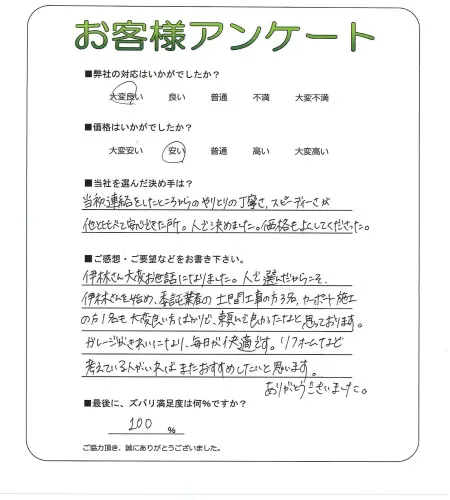 お客様アンケート
■弊社の対応はいかがでしたか?
大変良い 良い 普通 不満 大変不満
■価格はいかがでしたか?
大変安い 安い 普通 高い 大変高い
■当社を選んだ決め手は?
当初連絡をしたところからのやりとりの丁寧さ、スピーディーさが
他と比べて安心できた所。人で決めました。価格もよくしてくださった。
■ご感想・ご要望などをお書き下さい。
伊林さん大変お世話になりました。人で選んだからこそ、
伊林さんを始め、委託業者の土間工事の方3名、カーポート施工
の方1名も大変良い方ばかりで、頼んで良かったなと思っております。
ガレージがきれいになり、毎日が快適です。リフォームなど
考えている人がいればまたおすすめしたいと思います。
ありがとうございました。
■最後に、ズバリ満足度は何%ですか?
100 %
ご協力頂き、誠にありがとうございました。